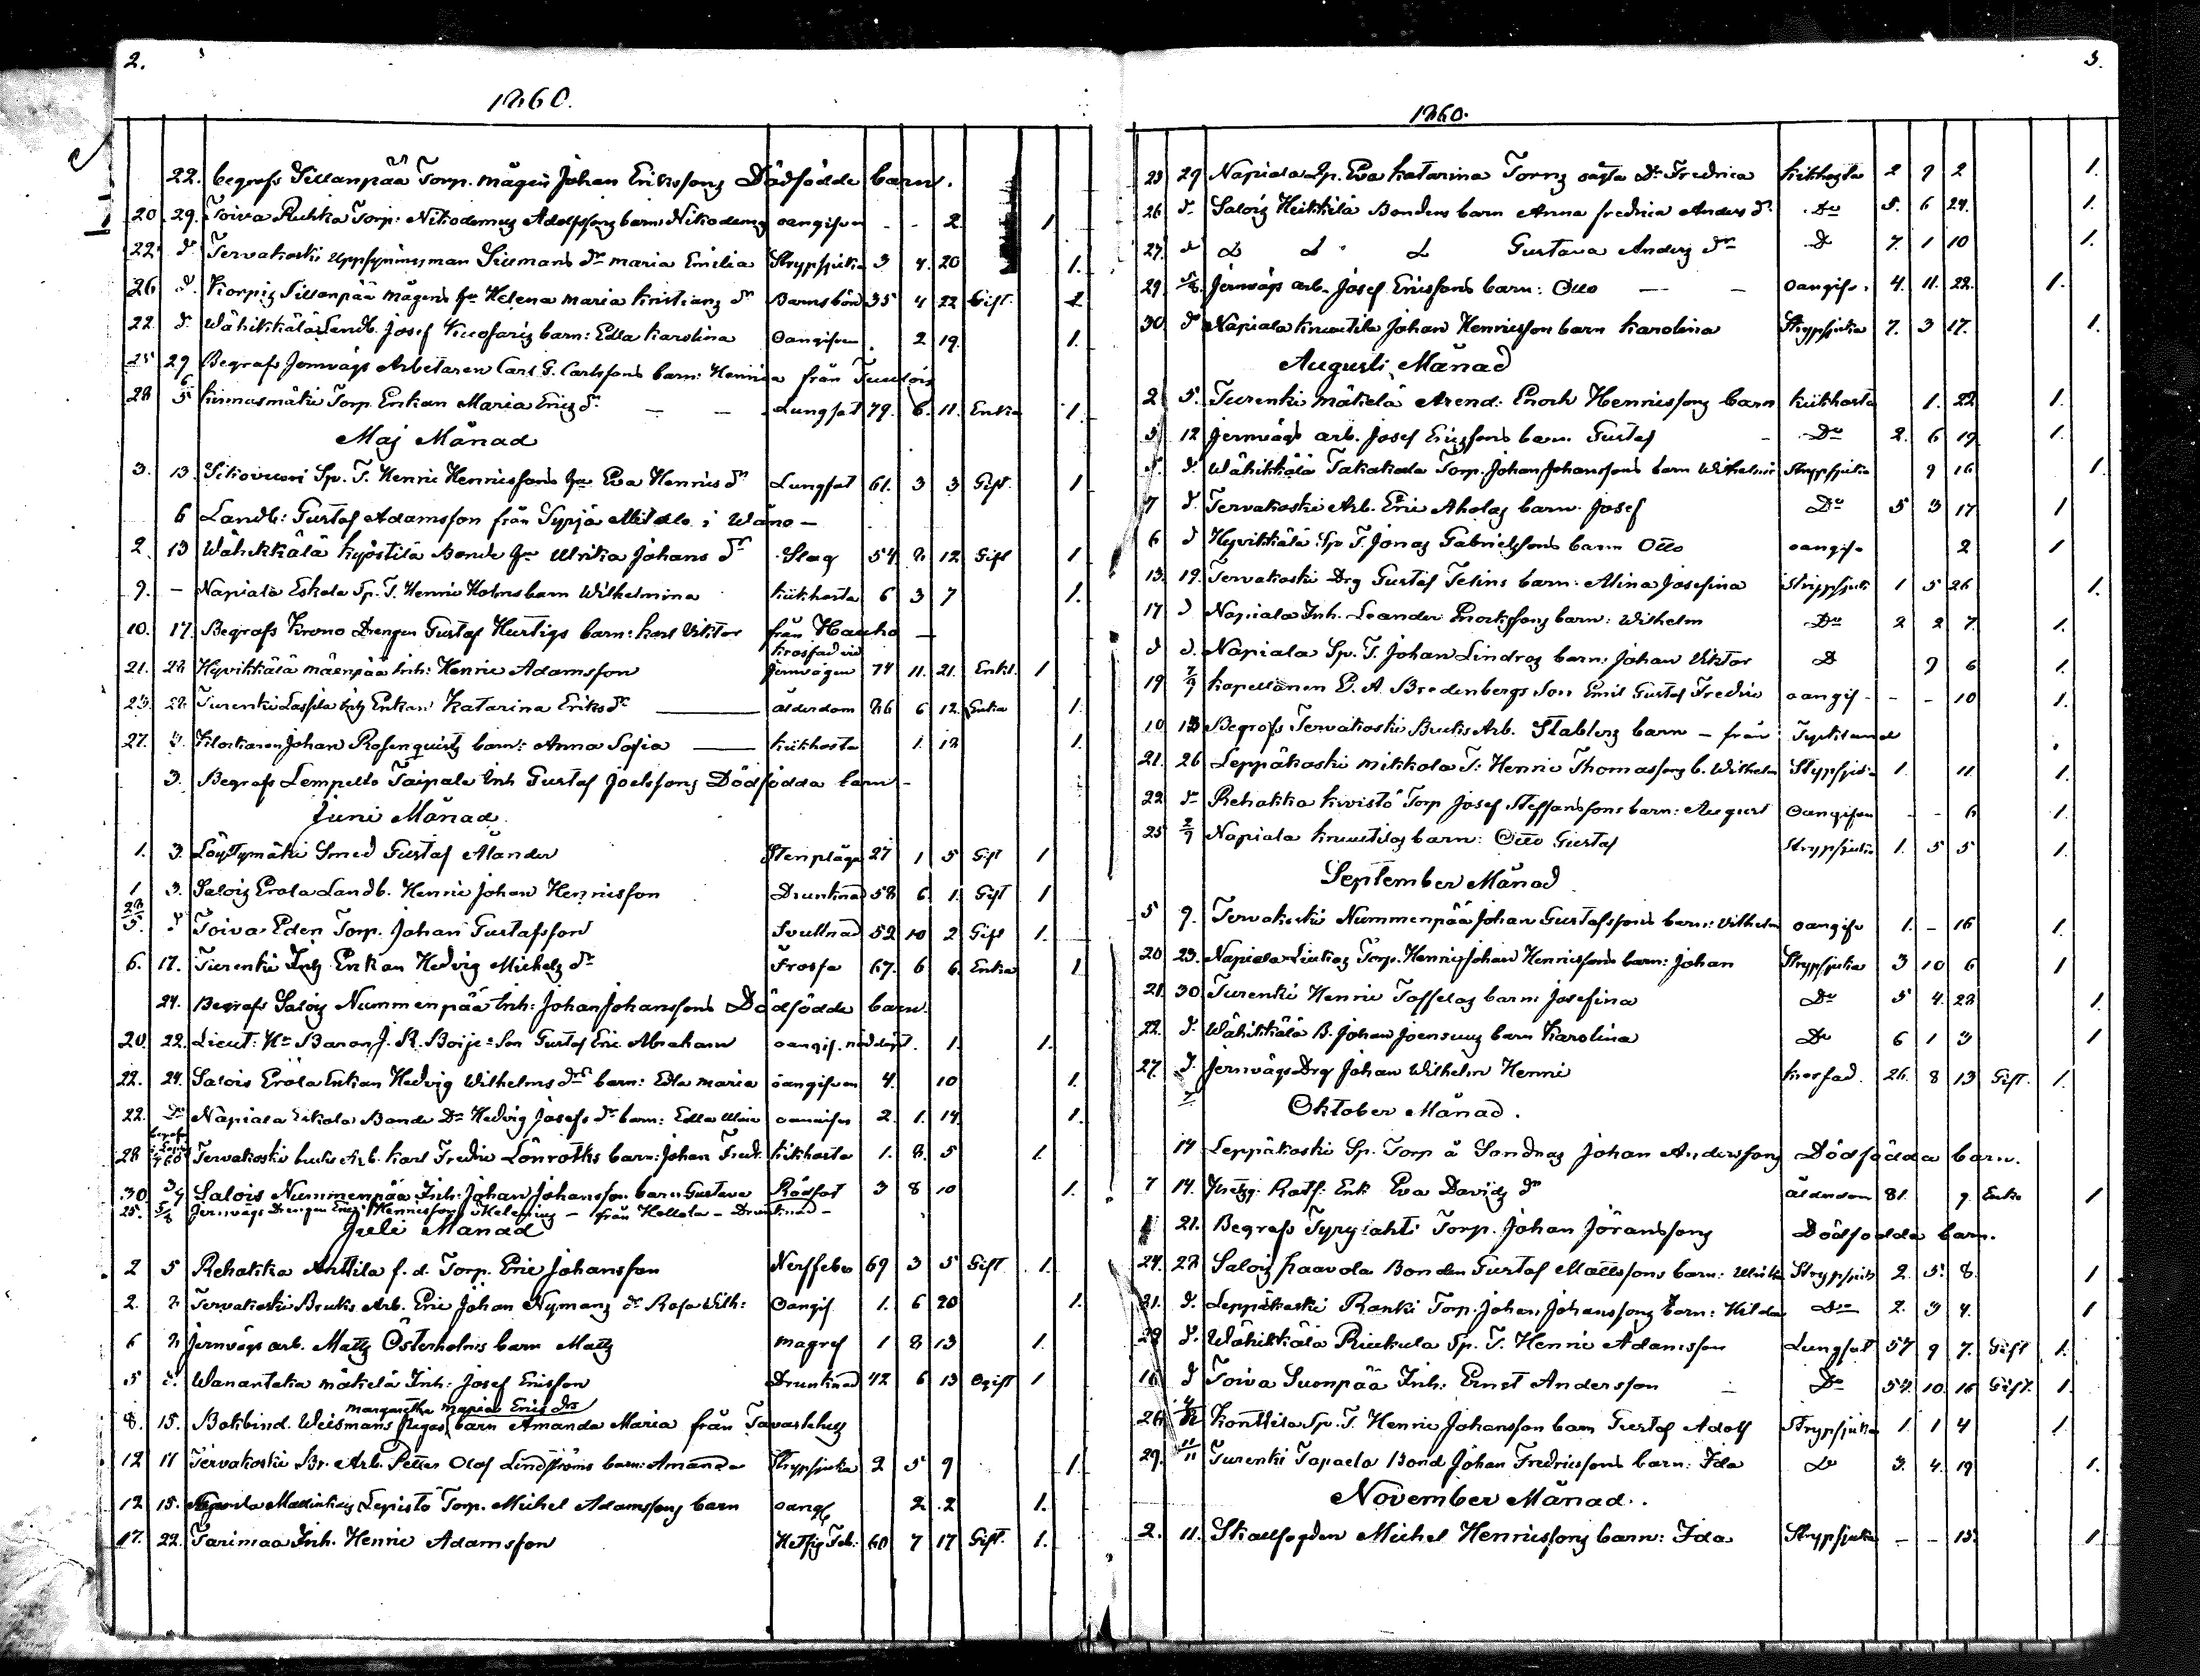 2.
1860.
22. begrafs Sillanpää Torp. mågen Johan Erikssons Dödfödde barn.
20 29. Toiva Ruhka Torp: Nikodemus Adolfssons barn Nikodemus oangifven - - 2. 1
22 d. Tervakoski Uppsyningsman dr Maria Emilia Strypsjuka 3 4. 20 1.
26 d. Korpis Sillanpää mågens hu Helena Maria Kristians dr Barnsbörd 35 4 22 Gift. 1
22. d. Wähikkälä Landb. Josef barn: Edla Karolina Oangifven . 2 19. 1.
25 29 Begrafs Jernvägs Arbetaren Carl G. Carlssons barn: Henrica från Tuulois
28 5/6 Torp. Enkan Maria Erics dr. — — Lungsot 79. 6. 11. Enka 1.
Maj Månad
3. 13. Sp. T. Henric Henricssons hu Eva Henrics dr Lungsot 61. 3 3 Gift. 1
6 Landb: Gustaf Adamsson från i Wåno —
2. 13 Wähikkälä Kyöstilä Bonde hu Ulrika Johans dr Slag 54. 2 12 Gift 1
9. — Napiala Eskola Sp. T. Henric Holms barn Wilhelmina kikhosta 6 3 7 1.
10. 17. Begrafs Krono Drengen Gustaf Hurtigs barn: Karl Viktor från Hauho —
krossad vid
21. 28 Hyvikkälä Mäenpää Inh: Henric Adamsson jernvägen 74 11. 21. Enkl. 1
23. 28. Turenki Lassila Enkan Katarina Eriks dr — ålderdom 86 6 12. Enka 1.
27. 3. Klockaren Johan Rosenquists barn: Anna Sofia — kikhosta 1. 12 1.
3. Begrafs Lempelto Taipale Inh Gustaf Joelssons Dödfödda barn -
Juni Månad.
1. 3. Löyttymäki Smed Gustaf Ålander Stenplåga 27 1 5 Gift 1
1 3. Salois Erola Landb. Henric Johan Henricsson Drunknad 58 6. 1. Gift 1
28/5. d Toiva Eden Torp. Johan Gustafsson Svullnad 52 10 2 Gift 1.
6. 17. Turenki Inh Enkan Hedvig Michels dr Frossa 67. 6 6. Enka 1
24. Begrafs Salois Nummenpää Inh: Johan Johanssons Dödfödde barn.
20. 22. Lieut: Hr Baron J. R. Boije: Son Gustaf Eric Abraham oangif. nöddöpt. 1. 1.
22. 24. Salois Erola Enkan Hedvig Wilhelms drs barn: Edla Maria oangifven 4. 10 1.
22. Do Napiala Eskola Bonde Dr Hedvig Josefs dr barn: Edla oangifven 2. 1. 14. 1.
28 Tervakoski bruks Arb. Karl Fredric Lönroths barn: Johan Fredr. kikhosta 1. 8. 5 1.
30. Salois Nummenpää Inh: Johan Johansson barn Gustava Rödsot 3 8 10 1.
25. 5/8 Jernvägs Drengen Eric Henricsson — från Hollola — Drunknad —
Juli Månad
2 5 Rehakka Anttila f. d. Torp. Eric Johansson Nerffeber 69 3 5 Gift 1.
2. Tervakoski Bruks Arb. Eric Johan Nymans dr Rosa Wilh: Oangif. 1. 6 20 1.
6 Jernvägs arb. Matts Österholms barn Matts magref 1 8 13 1.
5 d. Wanantaka Mäkelä Inh: Josef Ericsson Drunknad 42 6 13 Ogift 1
margaretha maria Erics drs
8. 15. Bokbind. Weismans Pigas barn Amanda Maria från Tavastehus
12 11 Tervakoski Br. Arb. Petter Olof Lindströms barn: Amanda Strypsjuka 2 5 9 1.
12 15. Lepistö Torp. Michel Adamssons barn oangf 2 2 1.
17. 22. Tarinmaa Inh. Henric Adamsson Hetsig Feb: 60 7 17 Gift. 1.
3.
1860.
23 29 Napiala Sp. Eva Katarina Torns oägta Dr Fredrica kikhosta 2 9 2 1.
26 d. Salois Heikkilä Bondens barn Anna Fredrica Anders dr Do 5. 6 24. 1.
27. d Gustava Anders dr Do 7. 1 10 1.
29. 5/8. Jernvägs arb. Josef Ericssons barn: Otto — — oangifv. 4. 11. 22. 1.
30. d Napiala Knuutila Johan Henricsson barn Karolina Strypsjuka 7. 3 17. 1.
Augusti Månad
2 5. Turenki Mäkelä Arend: Enoch Henricssons barn kikhosta 1. 22 1.
5 12 Jernvägs arb. Josef Ericssons barn. Gustaf - Do 2. 6 19 1.
d. Wähikkälä Takakala Torp. Johan Johanssons barn Wilhelmina Strypsjuka 9 16 1.
7 d. Tervakoski Arb. Eric Aholas barn. Josef Do 5 3 17 1
6 d Hyvikkälä: Sp T. Jonas Gabrielssons barn Otto oangifv 2 1
13. 19. Tervakoski Drg Gustaf Telins barn: Alina Josefina Strypsjuk 1 5 26 1.
17 d Napiala Inh. Leander Enockssons barn: Wilhelm Do 2 2 7. 1.
d d. Napiala Sp. T. Johan Lindros barn: Johan Viktor D 9 6 1.
19 7/9 Kapellanen E. A. Bredenbergs Son Emil Gustaf Fredric oangif- - - 10 1.
10 13 Begrafs Tervakoski Bruks Arb. Stablers barn — från Tyskland
21. 26 Leppäkoski Mikkola T. Henric Thomassons b. Wilhelm Strypsju 1. 11. 1.
22 d Rehakka Kivistö Torp Josef Steffanssons barn: August Oangifven - - 6 1.
25 2/9 Napiala Knuutilas barn: Otto Gustaf Strypsjuka 1. 5 5 1.
September Månad
5 9. Tervakoski Nummenpää Johan Gustafssons barn: Vilhelm oangifv 1. - 16 1.
20 23. Napiala Torp. Henric Johan Henricssons barn: Johan Strypsjuka 3 10 6 1
21. 30 Turenki Henric Toffelas barn: Josefina Do 5 4. 28 1.
22. d. Wähikkälä B. Johan Joensuus barn Karolina Do 6 1 3 1
27. d. Jernvägs Drg Johan Wilhelm Henric krossad. 26. 8 13 Gift. 1.
Oktober Månad.
14 Leppäkoski Sp. Torp å Sandnäs Johan Anderssons Dödfödda barn.
7 14. Enk Eva Davids dr ålderdom 81. 9. Enka 1
21. Begrafs Torp. Johan Jöranssons Dödfodda barn.
24. 28 Salois Paavola Bonden Gustaf Mattssons barn: Ulrika Strypsjuk 2. 5. 8. 1
21. d. Leppäkoski Ranki Torp. Johan Johanssons barn: Hilda Do 2. 3 4. 1
28 d. Wähikkälä Sp. T. Henric Adamsson Lungsot 57 9 7. Gift 1.
16 d Toiva Suonpää Inh: Ernst Andersson - Do 54. 10. 16 Gift. 1.
26. Konttila Sp. T. Henric Johansson barn Gustaf Adolf Strypsjuka 1. 1 4 1
29. 11/11 Turenki Tapaela Bond Johan Fredricssons barn: Ida Do 3. 4. 19 1.
November Månad.
2. 11. Skallfogden Michel Henricssons barn: Ida Strypsjuka - - 15. 1